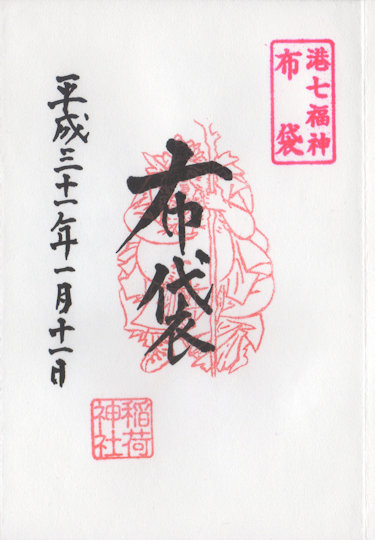 港七福神
布袋
布袋
平成三十一年一月十一日
稲荷
神社